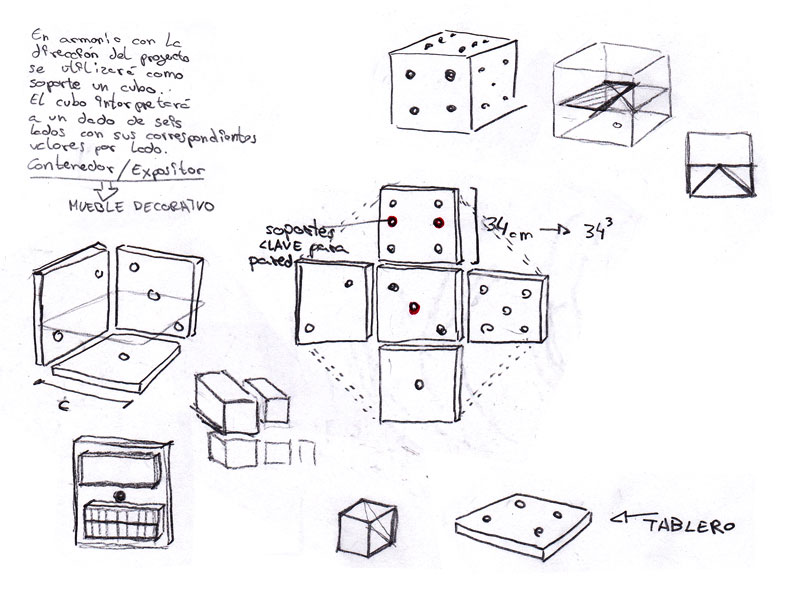 En armonia con La
dirección del proyecto
se utilizará como
soporte un cubo..
El cubo interpretará
a un dado de seis
lados con sus correspondientes
valores por lado.
Contenedor/Expositor
MUEBLE DECORATIVO
soportes
CLAVE para
pared
34cm → 34³
TABLERO